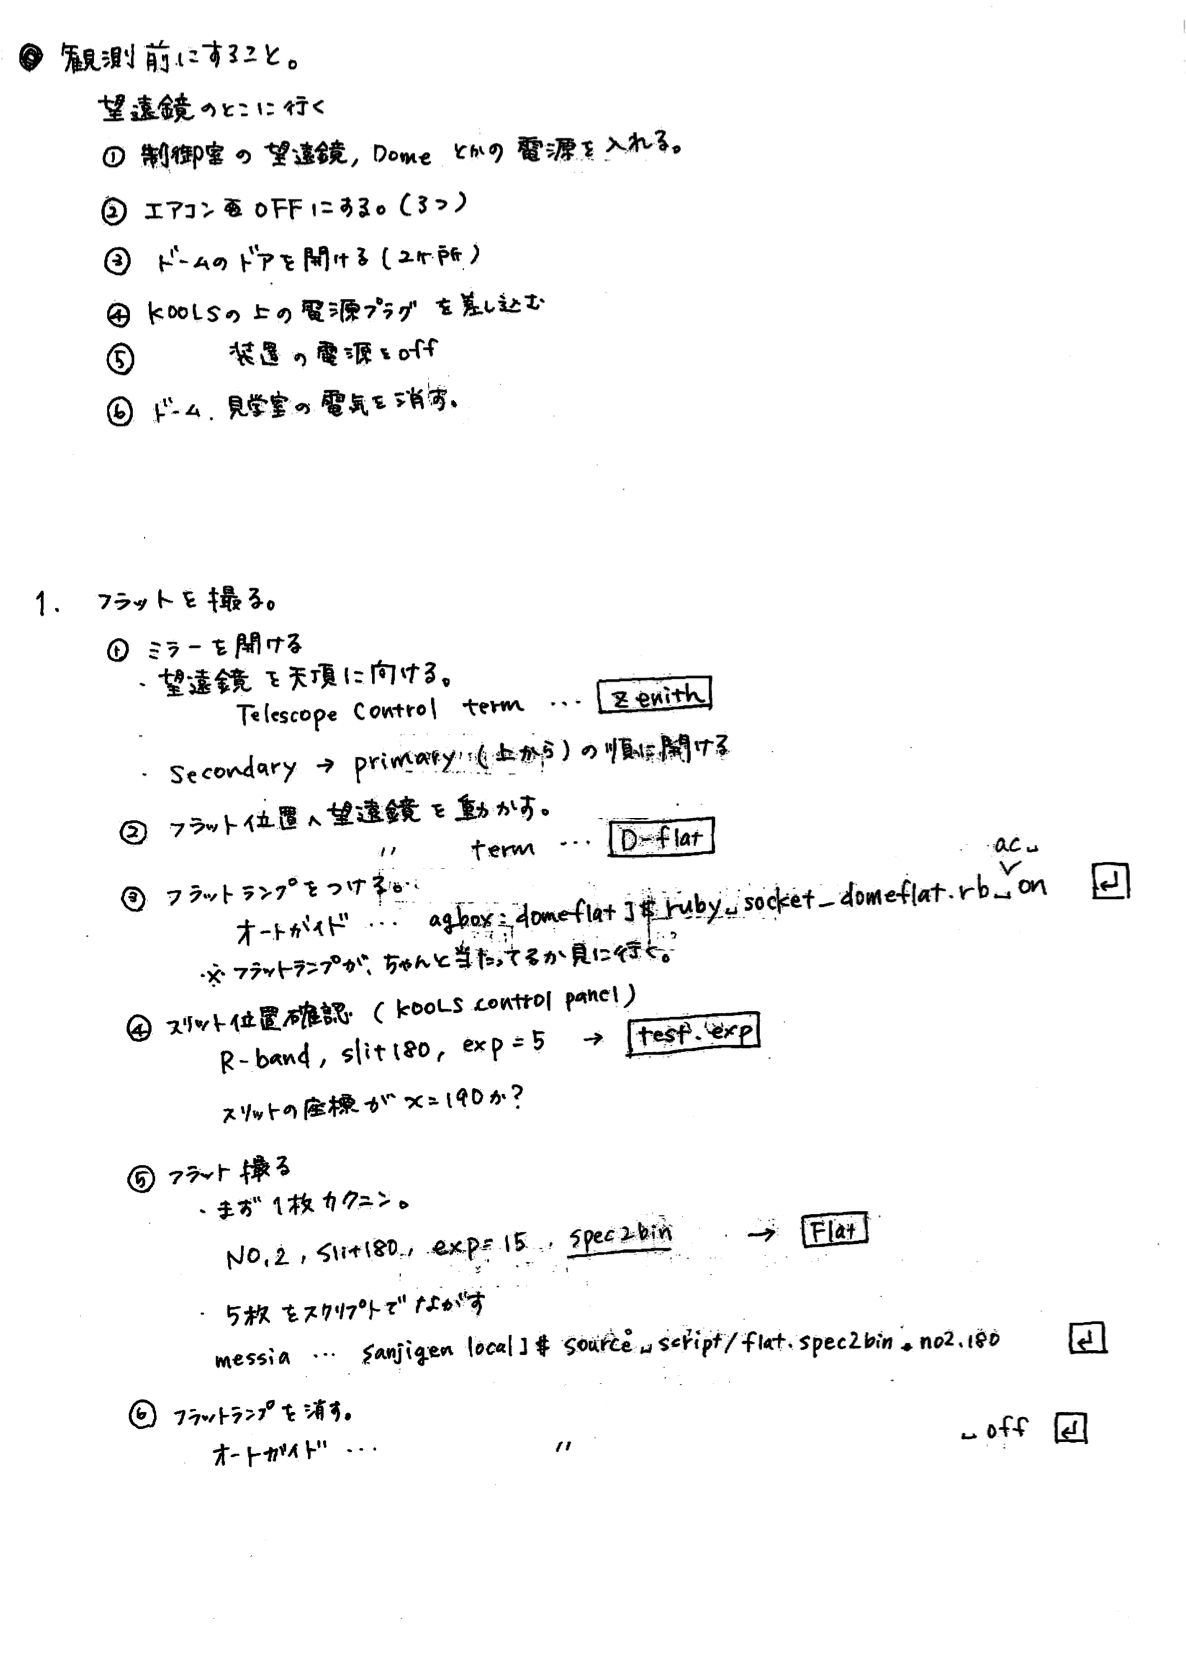 ◎ 観測前にすること。
望遠鏡のとこに行く
① 制御室の望遠鏡, Dome とかの電源を入れる。
② エアコンをOFFにする。(3つ)
③ ドームのドアを開ける(2ヶ所)
④ KOOLSの上の電源プラグを差し込む
⑤ 装置の電源をoff
⑥ ドーム、見学室の電気を消す。
1. フラットを撮る。
① ミラーを開ける
・望遠鏡を天頂に向ける。
Telescope Control term … Zenith
・Secondary → primary (上から)の順に開ける
② フラット位置へ望遠鏡を動かす。
〃 term … D-flat
ac␣
③ フラットランプをつける。
オートガイド … agbox: domeflat]$ ruby␣socket_domeflat.rb␣on ↵
※フラットランプが、ちゃんと当たってるか見に行く。
④ スリット位置確認 (KOOLS control panel)
R-band, slit180, exp=5 → test.exp
スリットの座標が x=190か?
⑤ フラット撮る
・まず1枚カクニン。
NO.2, slit180, exp=15, spec2bin → Flat
・5枚をスクリプトでながす
messia … sanjigen local]$ source␣script/flat.spec2bin.no2.180 ↵
⑥ フラットランプを消す。
オートガイド … 〃 ␣off ↵